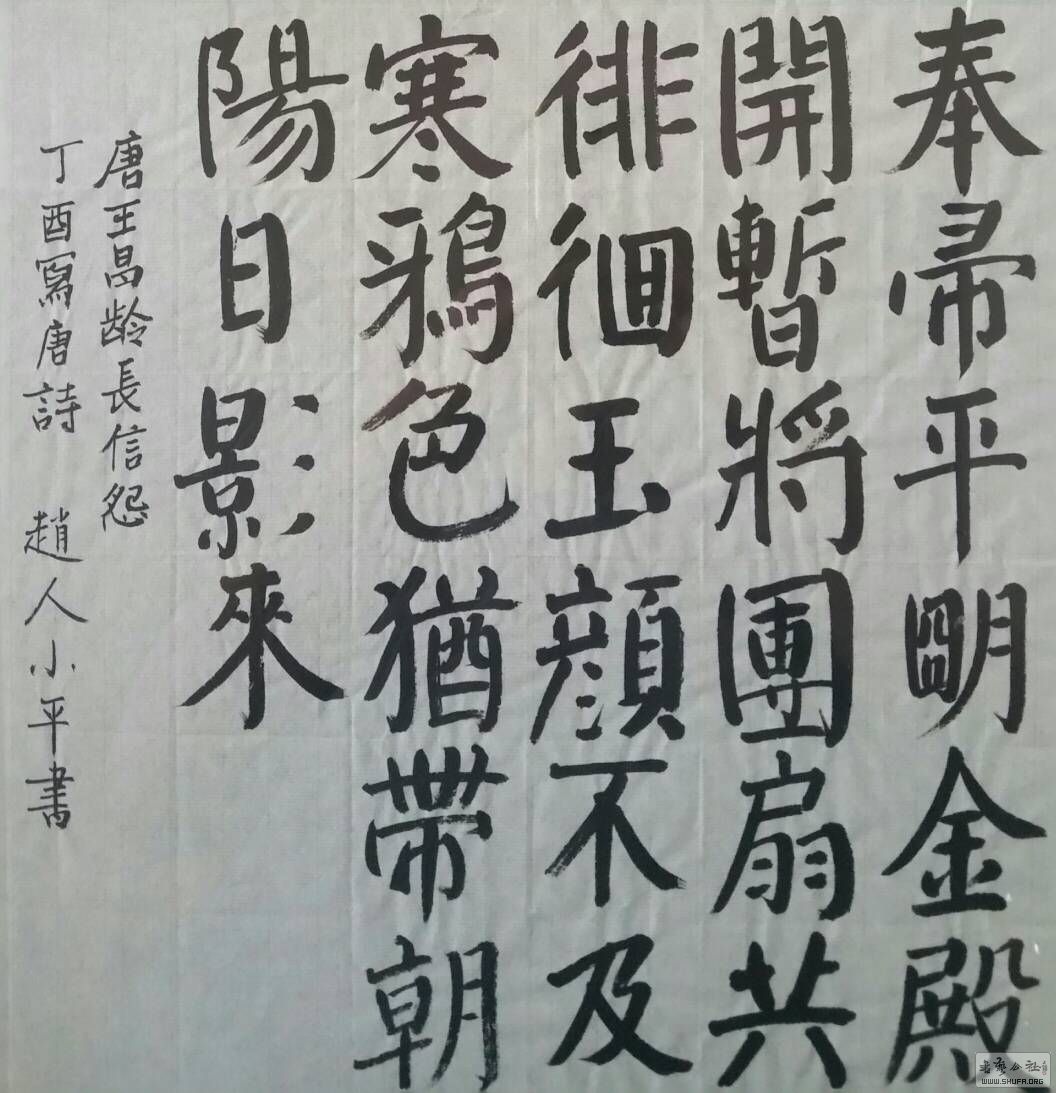 奉帚平明金殿
開暫將團扇共
徘徊玉顔不及
寒鴉色猶帶朝
陽日影來
唐王昌龄長信怨
丁酉寫唐詩 趙人小平書
书艺公社
WWW.SHUFA.ORG